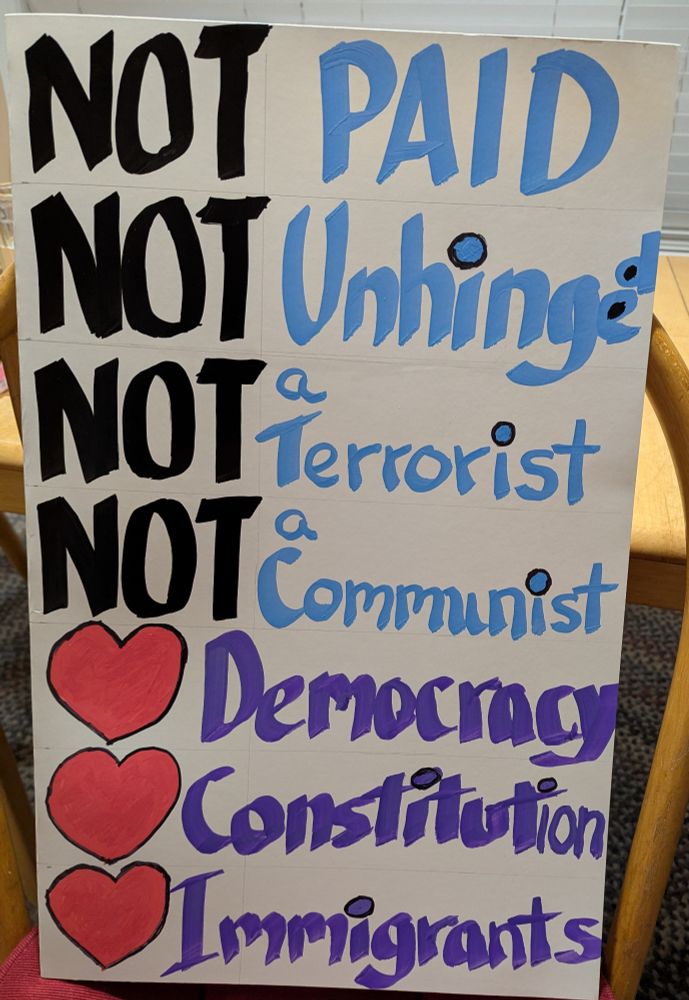 NOT PAID
NOT Unhinged
NOT a Terrorist
NOT a Communist
Democracy
Constitution
Immigrants